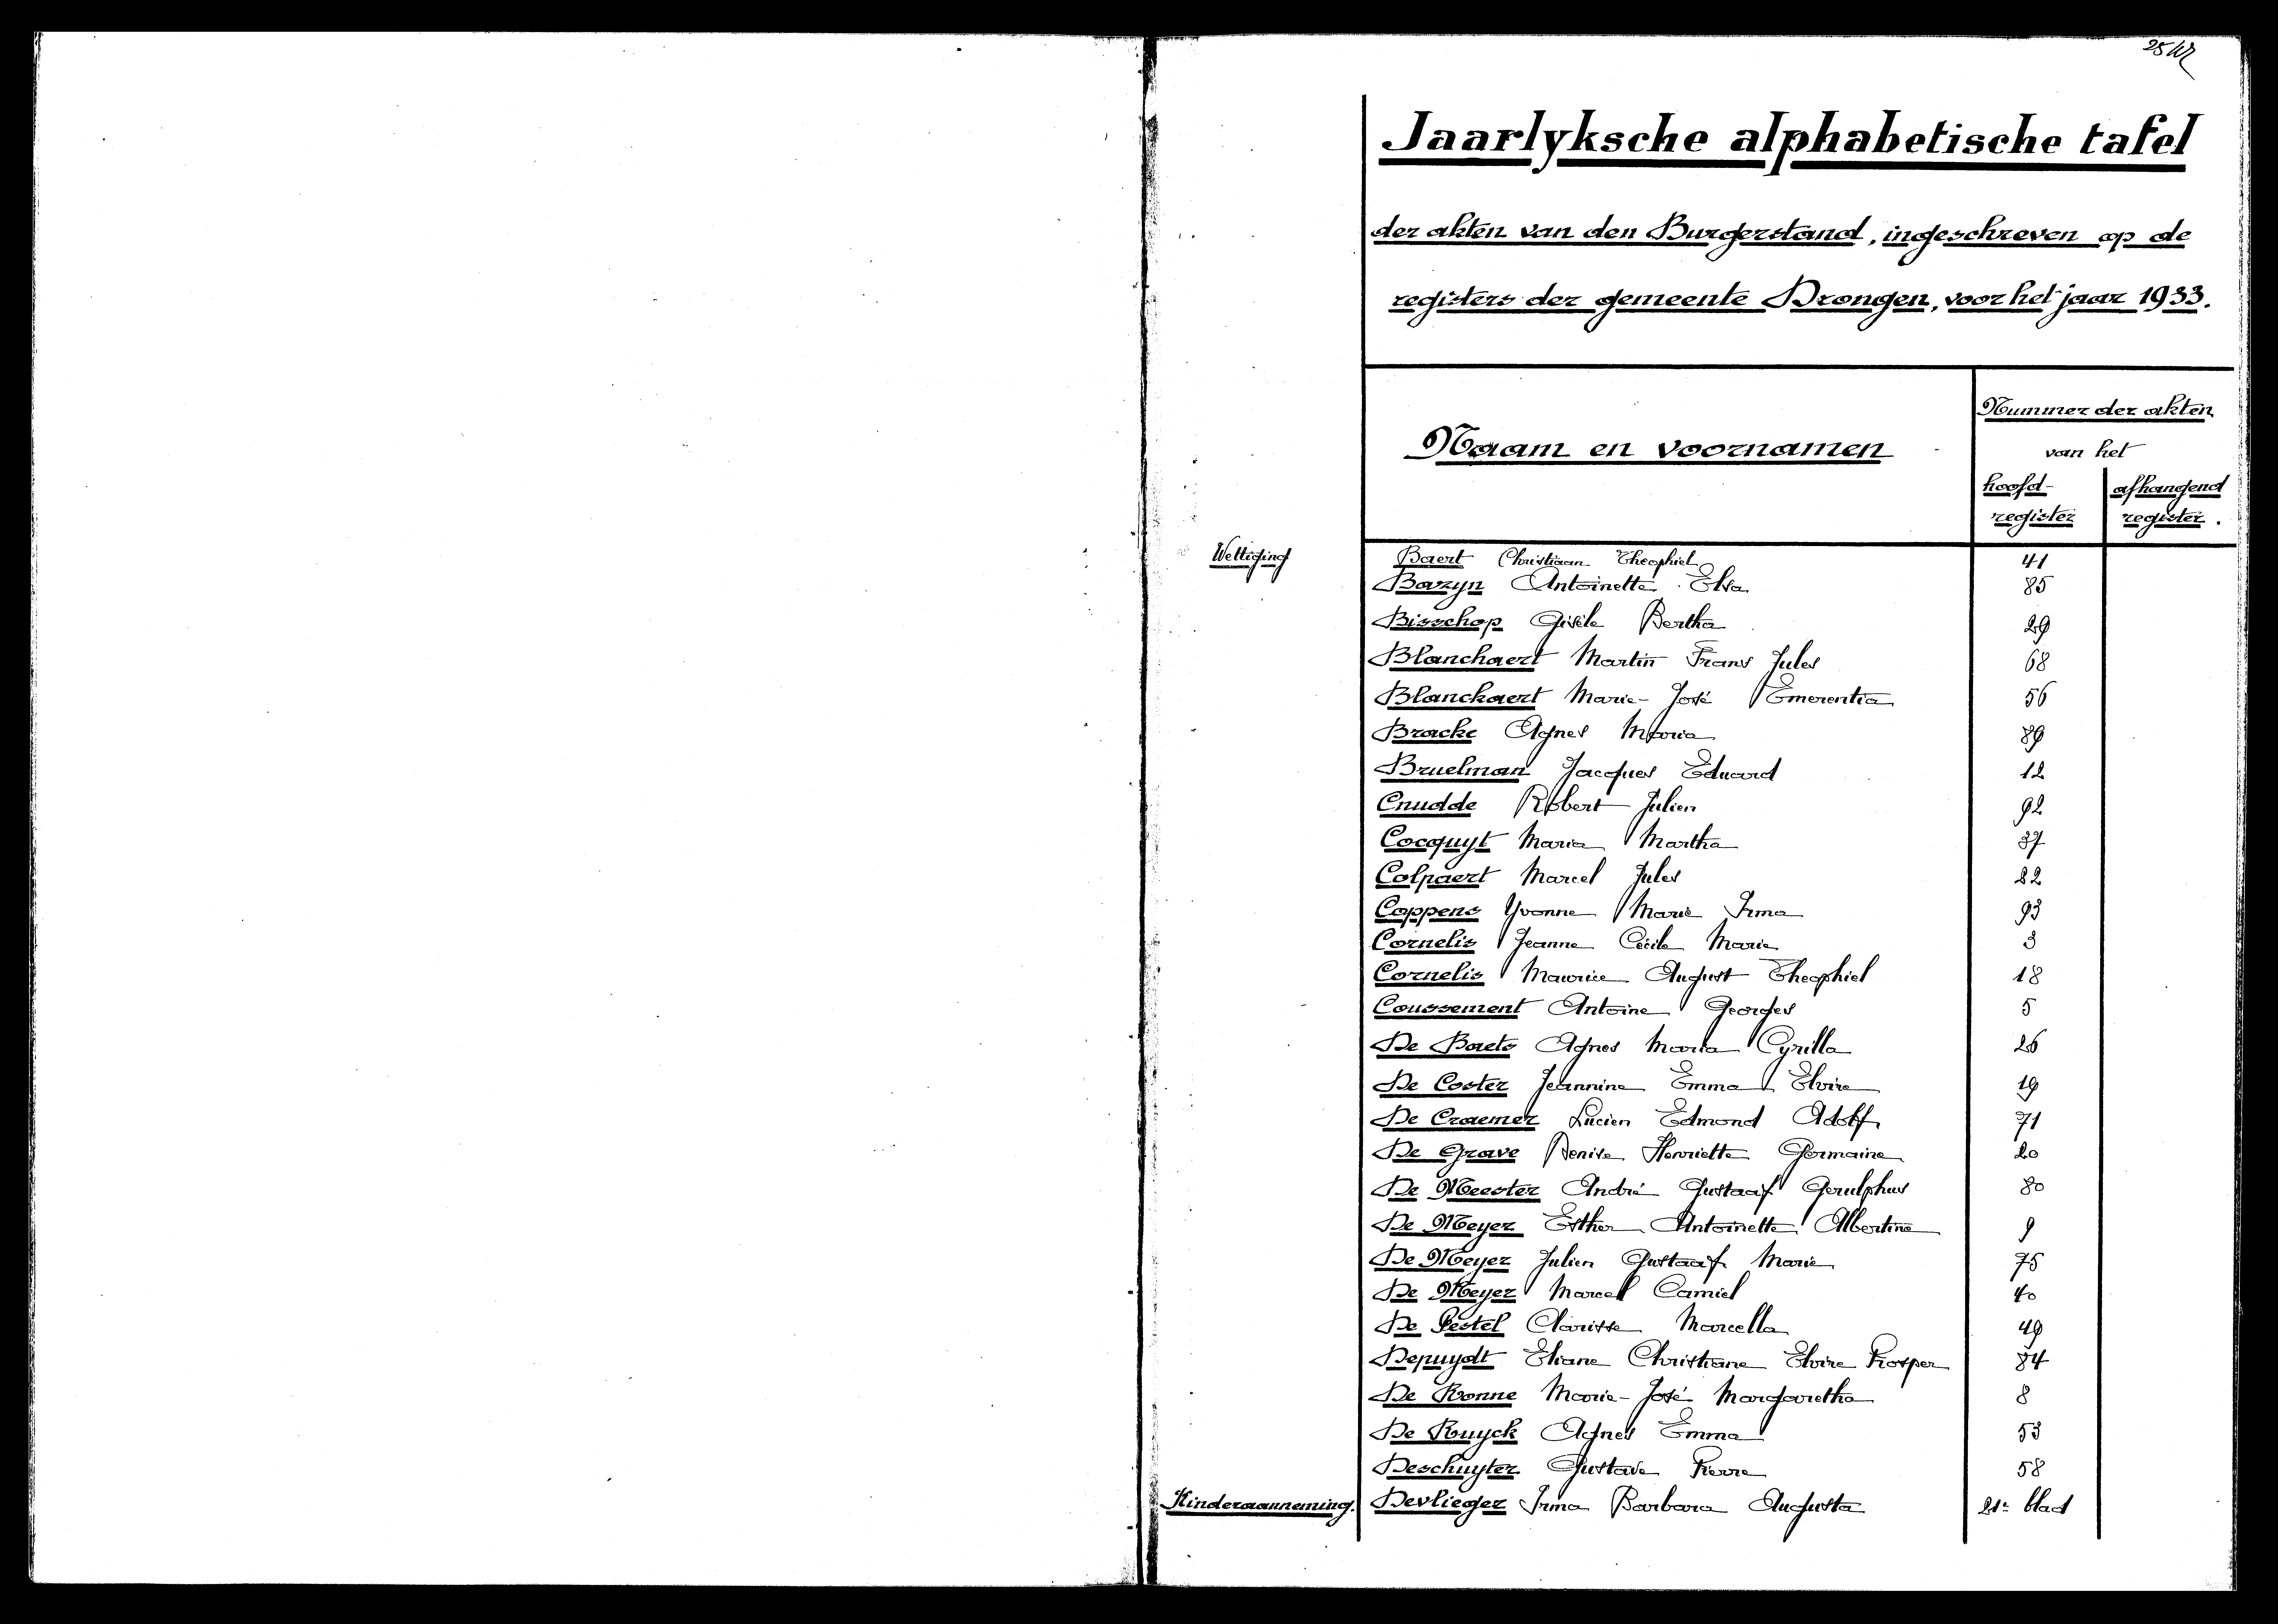 Jaarlyksche alphabetische tafel
der akten van den Burgerstand, ingeschreven op de
registers der gemeente Drongen, voor het jaar 1933.
Naam en voornamen
Nummer der akten
van het
hoofd- afhangend
register register.
Wettiging Baert Christiaan Theophiel 41
Bazyn Antoinette Elsa 85
Bisschop Gisèle Bertha 29
Blanchaert Martin Frans Jules 68
Blanckaert Marie-José Emerentia 56
Bracke Agnes Maria 89
Bruelman Jacques Eduard 12
Cnudde Robert Julien 92
Cocquyt Maria Martha 37
Colpaert Marcel Jules 82
Coppens Yvonne Marie Irma 93
Cornelis Jeanne Cécile Marie 3
Cornelis Maurice August Theophiel 18
Coussement Antoine Georges 5
De Baets Agnes Maria Cyrilla 26
De Coster Jeannine Emma Elvire 19
De Craemer Lucien Edmond Adolf 71
De Grave Denise Henriette Germaine 20
De Meester André Gustaaf Gerulphus 80
De Meyer Esther Antoinette Albertine 9
De Meyer Julien Gustaaf Marie 75
De Meyer Marcel Camiel 40
De Pestel Clarisse Marcella 49
Depuydt Eliane Christiane Elvire Prosper 84
De Ronne Marie-José Margaretha 8
De Ruyck Agnes Emma 53
Deschuyter Gustave Pierre 58
Kinderaanneming. Devlieger Irma Barbara Augusta 21e blad